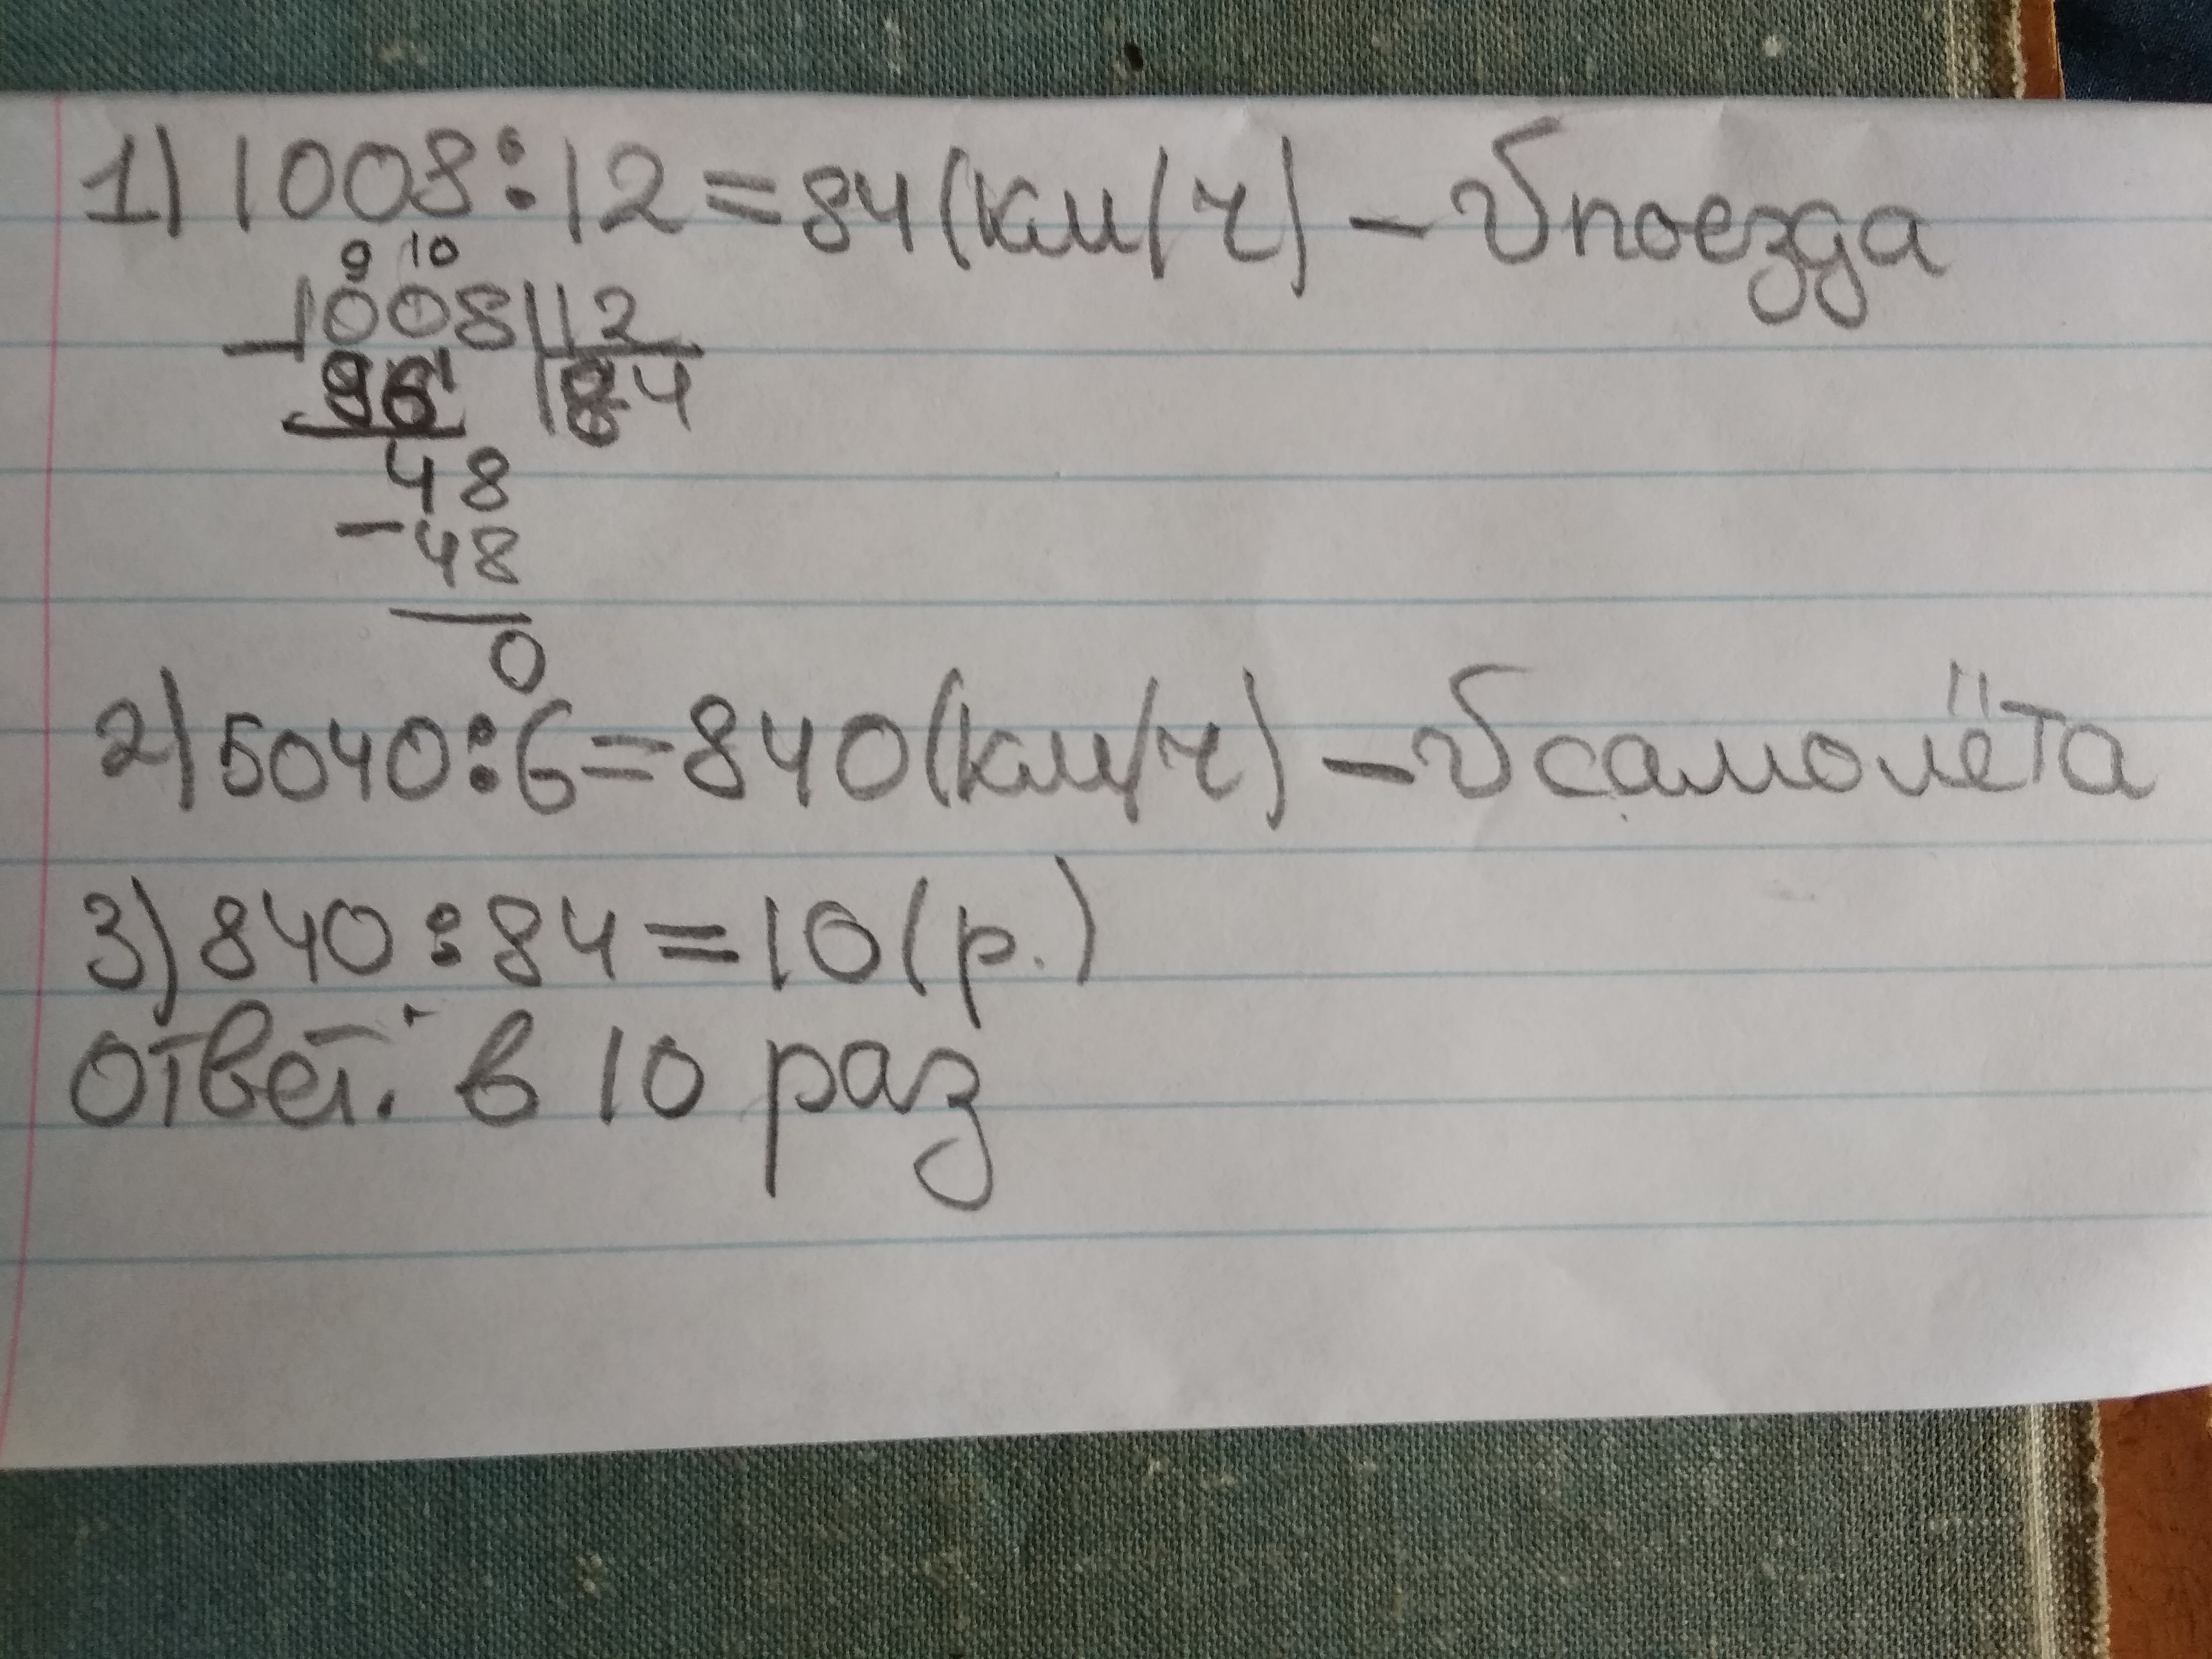 1) 1008:12=84(км/ч) - υпоезда
9 10
1008|12
- 96 |84
48
- 48
0
2) 5040:6=840(км/ч) - υсамолёта
3) 840:84=10(р.)
ответ: в 10 раз